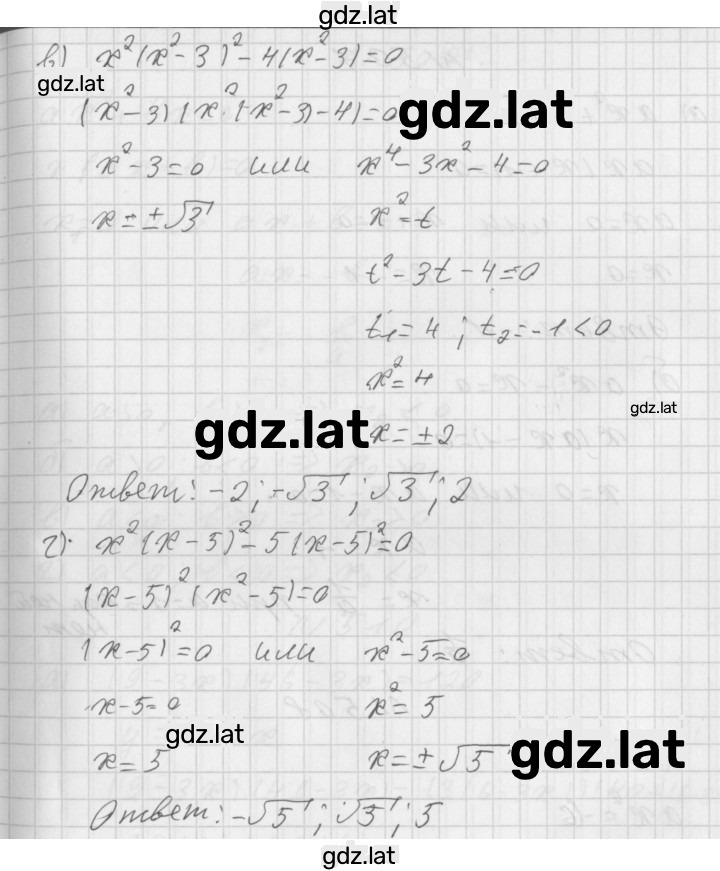 gdz.lat
в) x²(x²-3)²-4(x²-3)=0
gdz.lat
(x²-3)(x²(x²-3)-4)=0
gdz.lat
x²-3=0 или x⁴-3x²-4=0
x=±√3 x²=t
t²-3t-4=0
t₁=4; t₂=-1<0
x²=4
gdz.lat
gdz.lat
x=±2
Ответ: -2; -√3; √3; 2
г) x²(x-5)²-5(x-5)²=0
(x-5)²(x²-5)=0
(x-5)²=0 или x²-5=0
x-5=0 x²=5
gdz.lat
x=5 x=±√5
gdz.lat
Ответ: -√5; √5; 5
gdz.lat